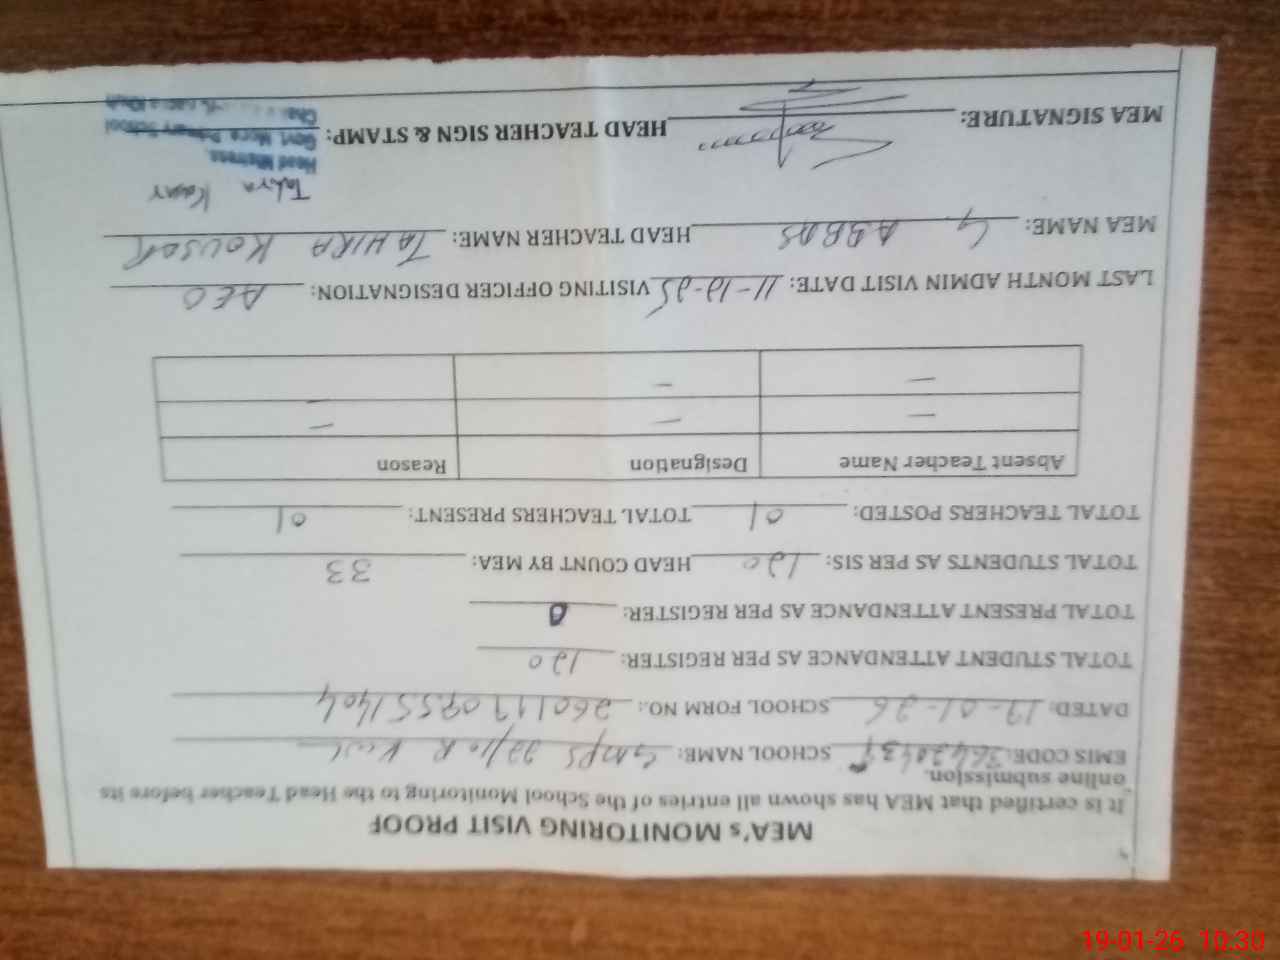 MEA's MONITORING VISIT PROOF
It is certified that MEA has shown all entries of the School Monitoring to the Head Teacher before its
online submission.
EMIS CODE: SCHOOL NAME: GMPS 22/10R
DATED: 19-01-26 SCHOOL FORM NO.: 26011909551404
TOTAL STUDENT ATTENDANCE AS PER REGISTER: 120
TOTAL PRESENT ATTENDANCE AS PER REGISTER: 0
TOTAL STUDENTS AS PER SIS: 120 HEAD COUNT BY MEA: 33
TOTAL TEACHERS POSTED: 01 TOTAL TEACHERS PRESENT: 01
Absent Teacher Name Designation Reason
— — —
— — —
LAST MONTH ADMIN VISIT DATE: 11-12-25 VISITING OFFICER DESIGNATION: AEO
MEA NAME: G. ABBAS HEAD TEACHER NAME: TAHIRA KOUSAR
MEA SIGNATURE: HEAD TEACHER SIGN & STAMP:
Head Mistress
Primary School
19-01-26 10:30